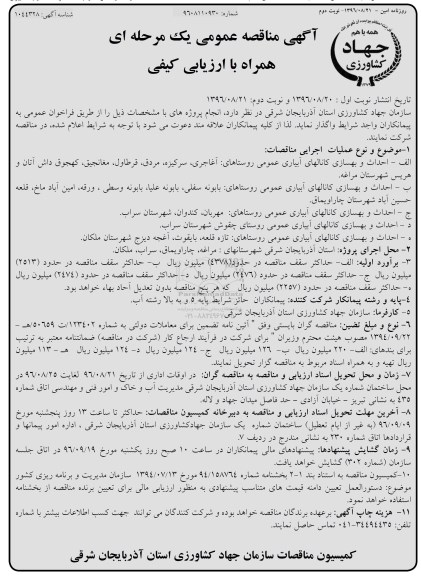 روزنامه امین - ۱۳۹۶/۰۸/۲۱ - نوبت دوم
شماره: ۹۶۰۸۱۱۰۹۳۰
شناسه آگهی: ۱۰۴۴۳۲۸
همه با هم
جهاد
کشاورزی
آگهی مناقصه عمومی یک مرحله ای
همراه با ارزیابی کیفی
تاریخ انتشار نوبت اول : ۱۳۹۶/۰۸/۲۰ و نوبت دوم: ۱۳۹۶/۰۸/۲۱
سازمان جهاد کشاورزی استان آذربایجان شرقی در نظر دارد، انجام پروژه های با مشخصات ذیل را از طریق فراخوان عمومی به
پیمانکاران واجد شرایط واگذار نماید. لذا از کلیه پیمانکاران علاقه مند دعوت می شود با توجه به شرایط اعلام شده، در مناقصه
شرکت نمایند.
۱-موضوع و نوع عملیات اجرایی مناقصات:
الف - احداث و بهسازی کانالهای آبیاری عمومی روستاهای: آغاجری، سرکیزه، مردق، قرطاول، مغانجیق، کهجوق داش آتان و
هریس شهرستان مراغه.
ب - احداث و بهسازی کانالهای آبیاری عمومی روستاهای: بابونه سفلی، بابونه علیا، بابونه وسطی ، ورقه، امین آباد ماخ، قلعه
حسین آباد شهرستان چاراویماق.
ج - احداث و بهسازی کانالهای آبیاری عمومی روستاهای: مهربان، کندوان، شهرستان سراب.
د - احداث و بهسازی کانالهای آبیاری عمومی روستای چقوش شهرستان سراب.
ه - احداث و بهسازی کانالهای آبیاری عمومی روستاهای: تازه قلعه، بایقوت، آغجه دیزج شهرستان ملکان.
۲- محل اجرای پروژه: استان آذربایجان شرقی شهرستانهای : مراغه، چاراویماق، سراب، ملکان.
۳- برآورد اولیه: الف- حداکثر سقف مناقصه در حدود(۴۳۷۸) میلیون ریال ب- حداکثر سقف مناقصه در حدود (۲۵۱۳)
میلیون ریال ج- حداکثر سقف مناقصه در حدود (۲۴۷۶) میلیون ریال د- حداکثر سقف مناقصه در حدود (۲۴۷۴) میلیون ریال
ه- حداکثر سقف مناقصه در حدود (۲۲۵۷) میلیون ریال که هر پنج مناقصه بدون تعدیل آحاد بهاء خواهد بود.
۴-پایه و رشته پیمانکار شرکت کننده: پیمانکاران حائز شرایط پایه ۵ و به بالا رشته آب.
۵- کارفرما: سازمان جهاد کشاورزی استان آذربایجان شرقی.
۶- نوع و مبلغ تضمین: مناقصه گران بایستی وفق " آئین نامه تضمین برای معاملات دولتی به شماره ۱۲۳۴۰۲/ت ۵۰۶۵۹ هـ
۱۳۹۴/۰۹/۲۲ مصوب هیئت محترم وزیران " برای شرکت در فرآیند ارجاع کار (شرکت در مناقصه) ضمانتنامه معتبر به ترتیب
برای بندهای: الف- ۲۲۰ میلیون ریال ب- ۱۲۶ میلیون ریال ج- ۱۲۴ میلیون ریال د- ۱۲۴ میلیون ریال هـ- ۱۱۳ میلیون
ریال تهیه و به همراه اسناد مربوط به مناقصه گزار تحویل نمایند.
۷- زمان و محل تحویل اسناد ارزیابی و مناقصه به مناقصه گران: در اوقات اداری از تاریخ ۹۶/۰۸/۲۱ لغایت ۹۶/۰۸/۲۵ در
محل ساختمان شماره یک سازمان جهاد کشاورزی استان آذربایجان شرقی مدیریت آب و خاک و امور فنی و مهندسی اتاق شماره
۴۳۵ به نشانی تبریز – خیابان آزادی – حد فاصل میدان جهاد و لاله.
۸- آخرین مهلت تحویل اسناد ارزیابی و مناقصه به دبیرخانه کمیسیون مناقصات: حداکثر تا ساعت ۱۳ روز پنجشنبه مورخ
۹۶/۰۹/۰۹ (به غیر از ایام تعطیل) ساختمان شماره یک سازمان جهادکشاورزی استان آذربایجان شرقی ، اداره امور پیمانها و
قراردادها اتاق شماره ۲۳۰ به نشانی مندرج در ردیف ۷.
۹- زمان گشایش پیشنهادها: پیشنهادهای مالی پیمانکاران در ساعت ۱۰ صبح روز یکشنبه مورخ ۹۶/۰۹/۱۹ در اتاق جلسه
سازمان (شماره ۳۰۲) گشایش خواهد یافت.
۱۰-کمیسیون مناقصه به استناد بند ۱-۲ بخشنامه شماره ۹۴/۱۵۸۷۶۴ مورخ ۱۳۹۴/۰۷/۱۳ سازمان مدیریت و برنامه ریزی کشور
موضوع: دستورالعمل تعیین دامنه قیمت های متناسب پیشنهادی به منظور ارزیابی مالی برای تعیین برنده مناقصه از بخشنامه
استفاده خواهد نمود.
۱۱- هزینه چاپ آگهی: برعهده برندگان مناقصه خواهد بوده و شرکت کنندگان می توانند جهت کسب اطلاعات بیشتر با شماره
تلفن: ۳۴۴۹۴۴۳۵-۰۴۱ تماس حاصل نمایند.
کمیسیون مناقصات سازمان جهاد کشاورزی استان آذربایجان شرقی